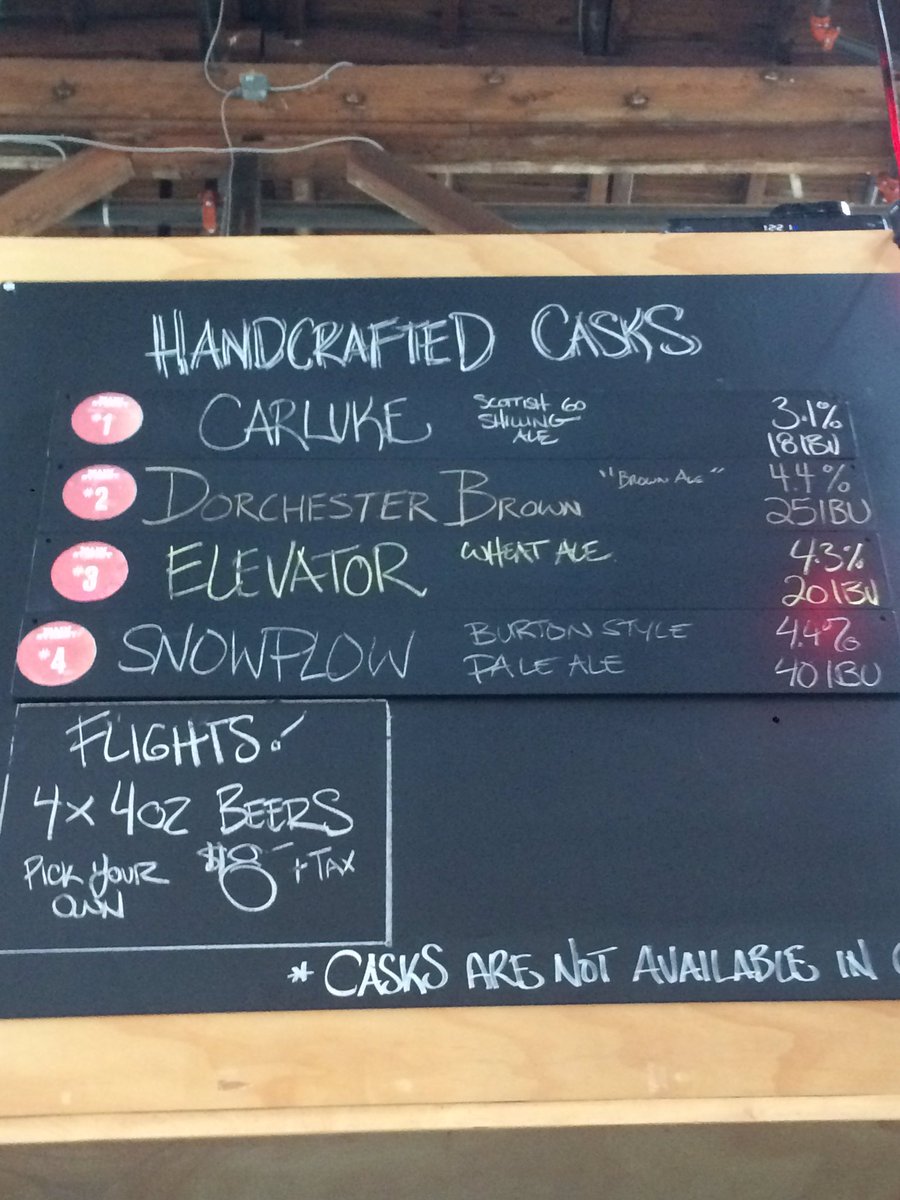 HANDCRAFTED CASKS
#1 CARLUKE SCOTTISH 60 SHILLING ALE 3.1% 18 IBU
#2 DORCHESTER BROWN "BROWN ALE" 4.4% 25 IBU
#3 ELEVATOR WHEAT ALE 4.3% 20 IBU
#4 SNOWPLOW BURTON STYLE PALE ALE 4.4% 40 IBU
FLIGHTS!
4 x 4oz BEERS
PICK YOUR OWN $8 + TAX
* CASKS ARE NOT AVAILABLE IN